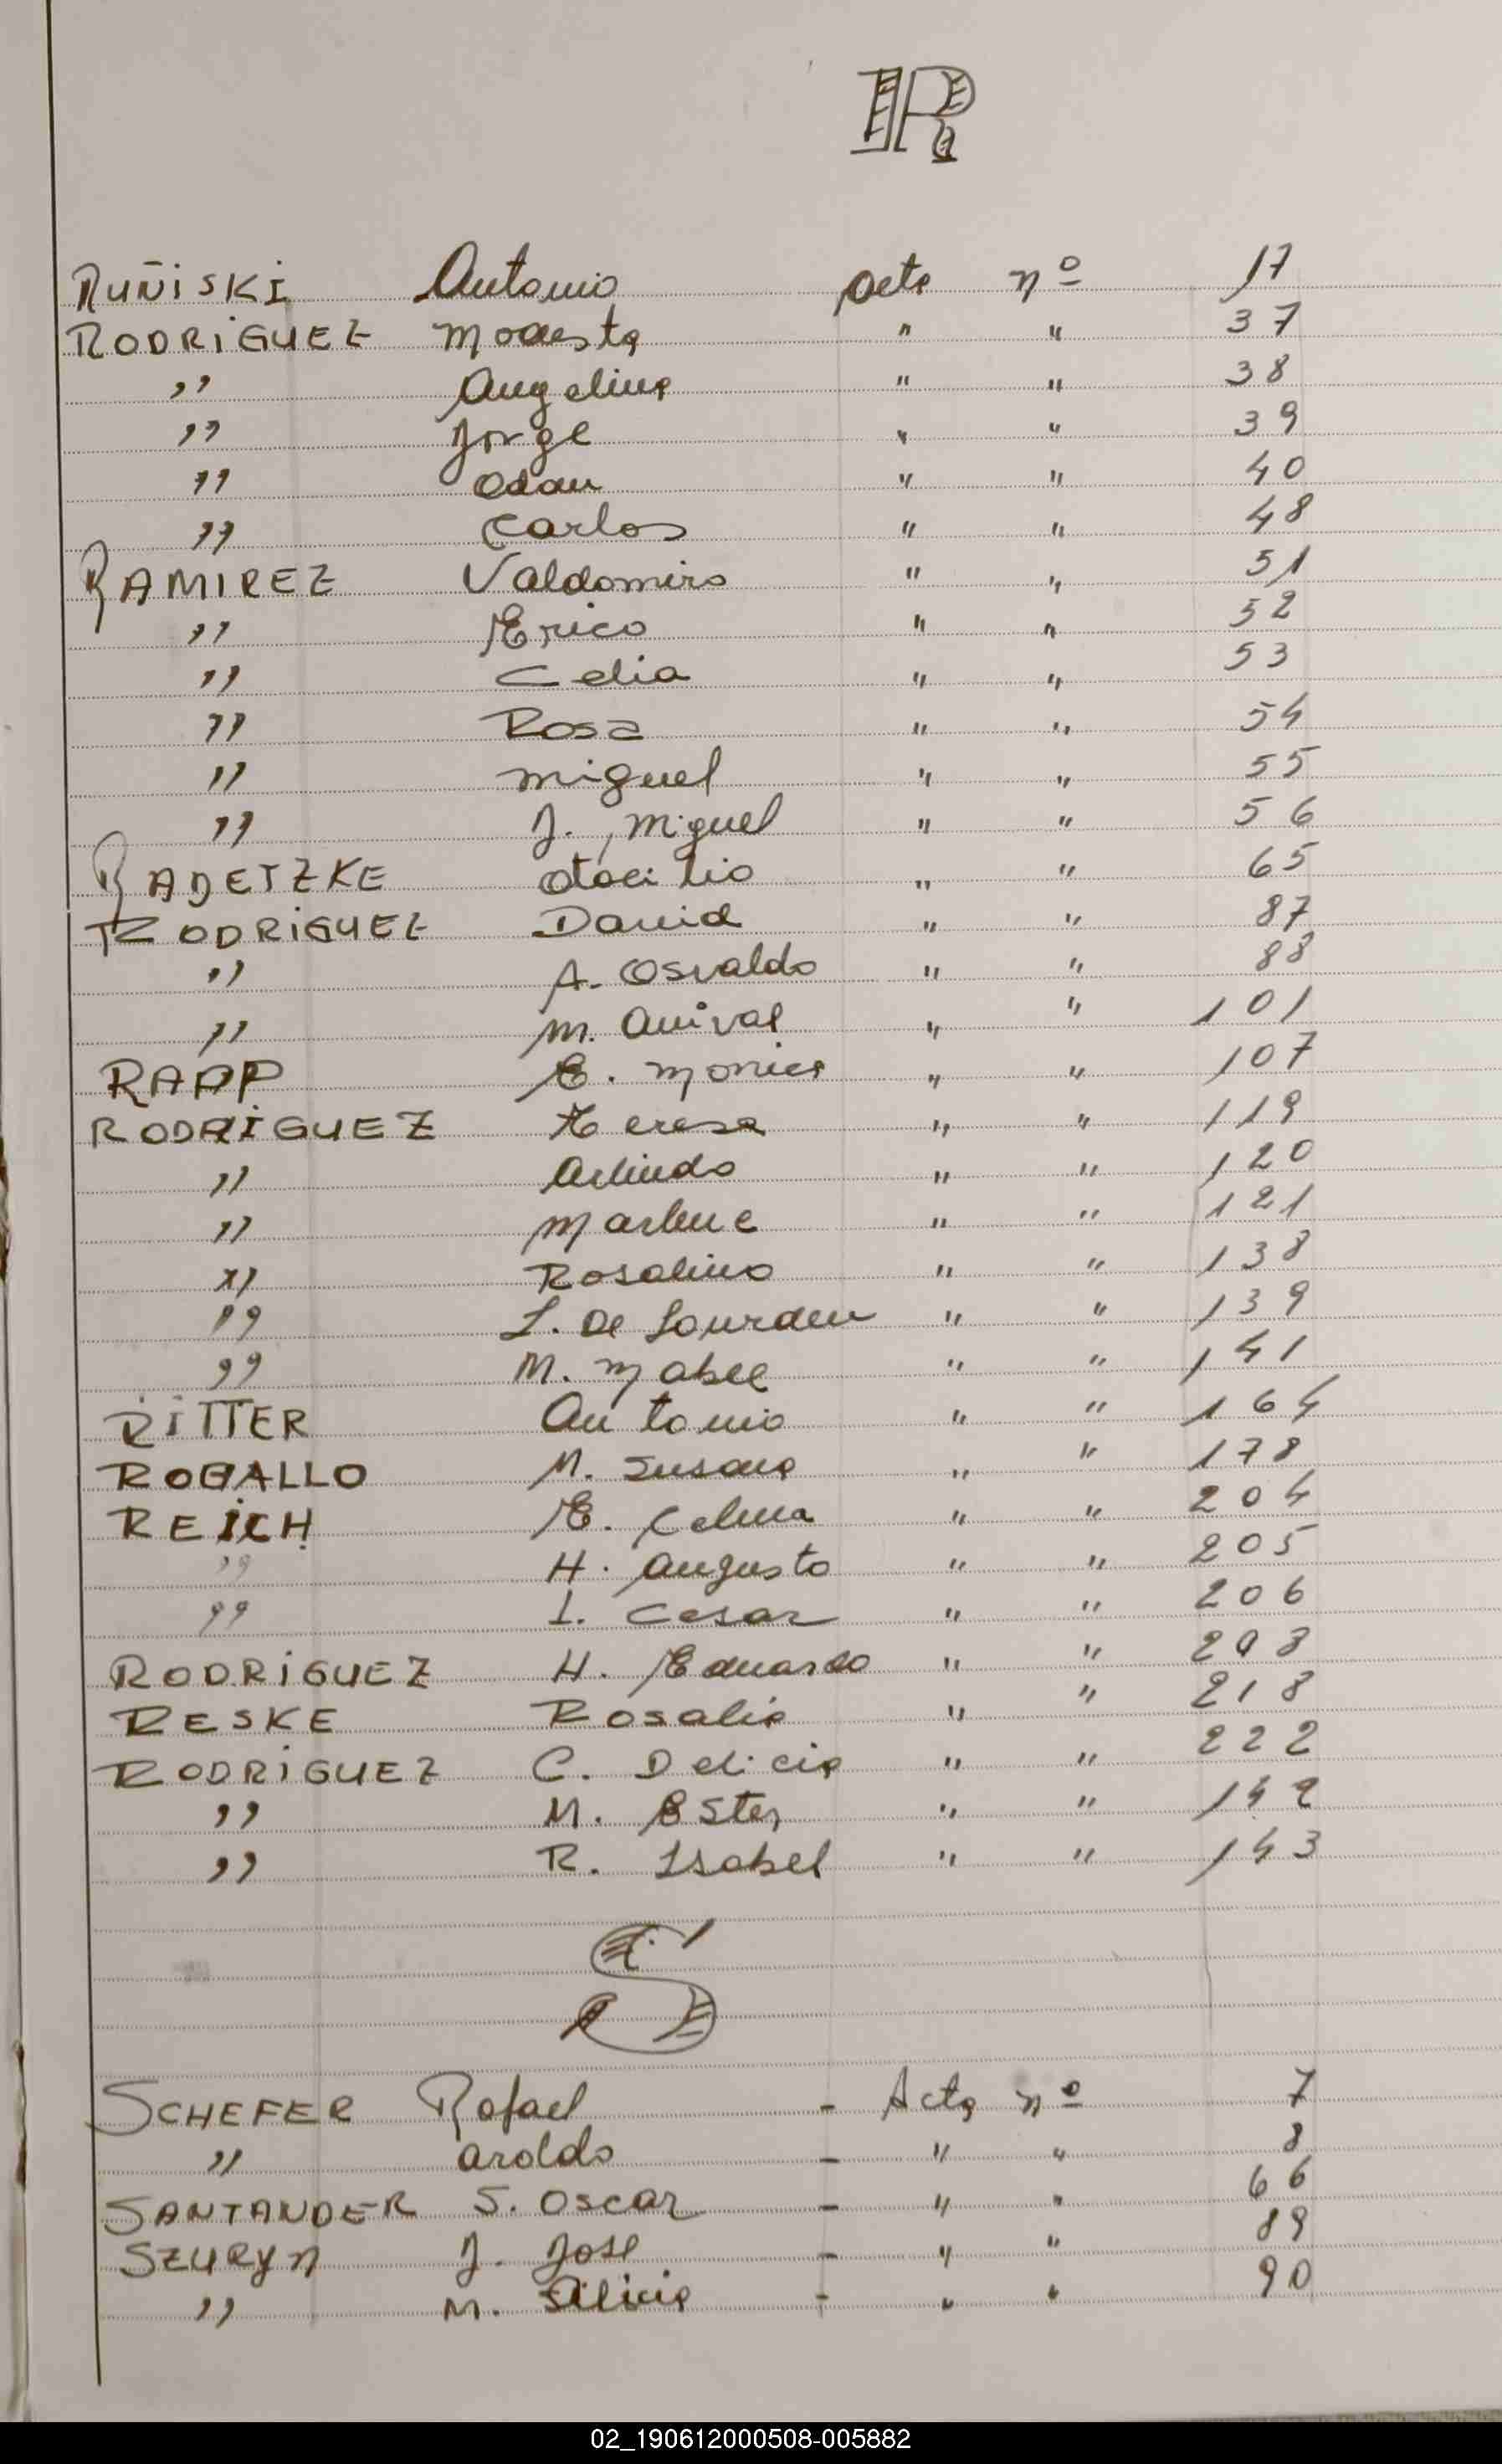 R
RUÑiSKi Antonio Acta nº 17
RODRiGUEZ Modesta " " 37
" Angelina " " 38
" Jorge " " 39
" Odan " " 40
" Carlos " " 48
RAMIREZ Valdomiro " " 51
" Erico " " 52
" Celia " " 53
" Rosa " " 54
" Miguel " " 55
" J. Miguel " " 56
RADETZKE Otacilio " " 65
RODRiGUEZ David " " 87
" A. Osvaldo " " 88
" M. Anival " " 101
RAAP E. Monica " " 107
RODRiGUEZ Teresa " " 119
" Arlindo " " 120
" Marlene " " 121
" Rosalino " " 138
" L. De Lourdes " " 139
" M. Mabel " " 141
RiTTER Antonio " " 164
ROBALLO M. Susana " " 178
REICH E. Celina " " 204
" H. Augusto " " 205
" I. Cesar " " 206
RODRiGUEZ H. Eduardo " "
RESKE Rosalia " " 218
RODRiGUEZ C. Delicia " " 222
" M. Ester " " 142
" R. Isabel " " 143
S
SCHEFER Rafael - Acta nº 7
" Aroldo - " " 8
SANTANDER S. Oscar - " " 66
SZURYN J. José - " " 89
" M. Silvia - " " 90
02_190612000508-005882